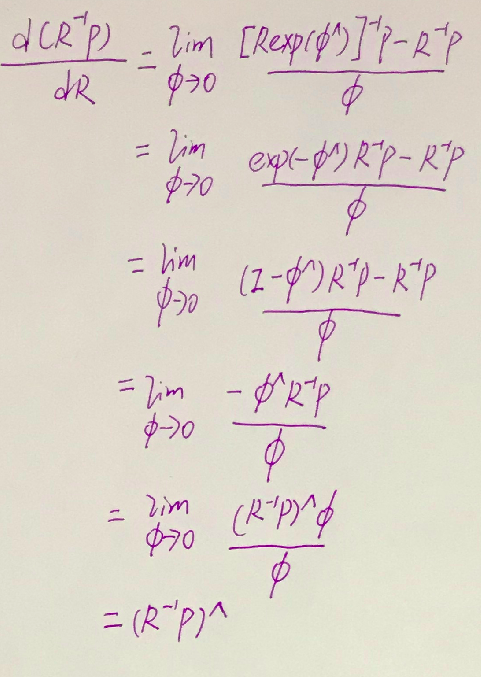 d(R⁻¹p)/dR = lim_{ϕ→0} ([Rexp(ϕ^)]⁻¹p - R⁻¹p)/ϕ
= lim_{ϕ→0} (exp(-ϕ^)R⁻¹p - R⁻¹p)/ϕ
= lim_{ϕ→0} ((I-ϕ^)R⁻¹p - R⁻¹p)/ϕ
= lim_{ϕ→0} (-ϕ^R⁻¹p)/ϕ
= lim_{ϕ→0} ((R⁻¹p)^ϕ)/ϕ
= (R⁻¹p)^